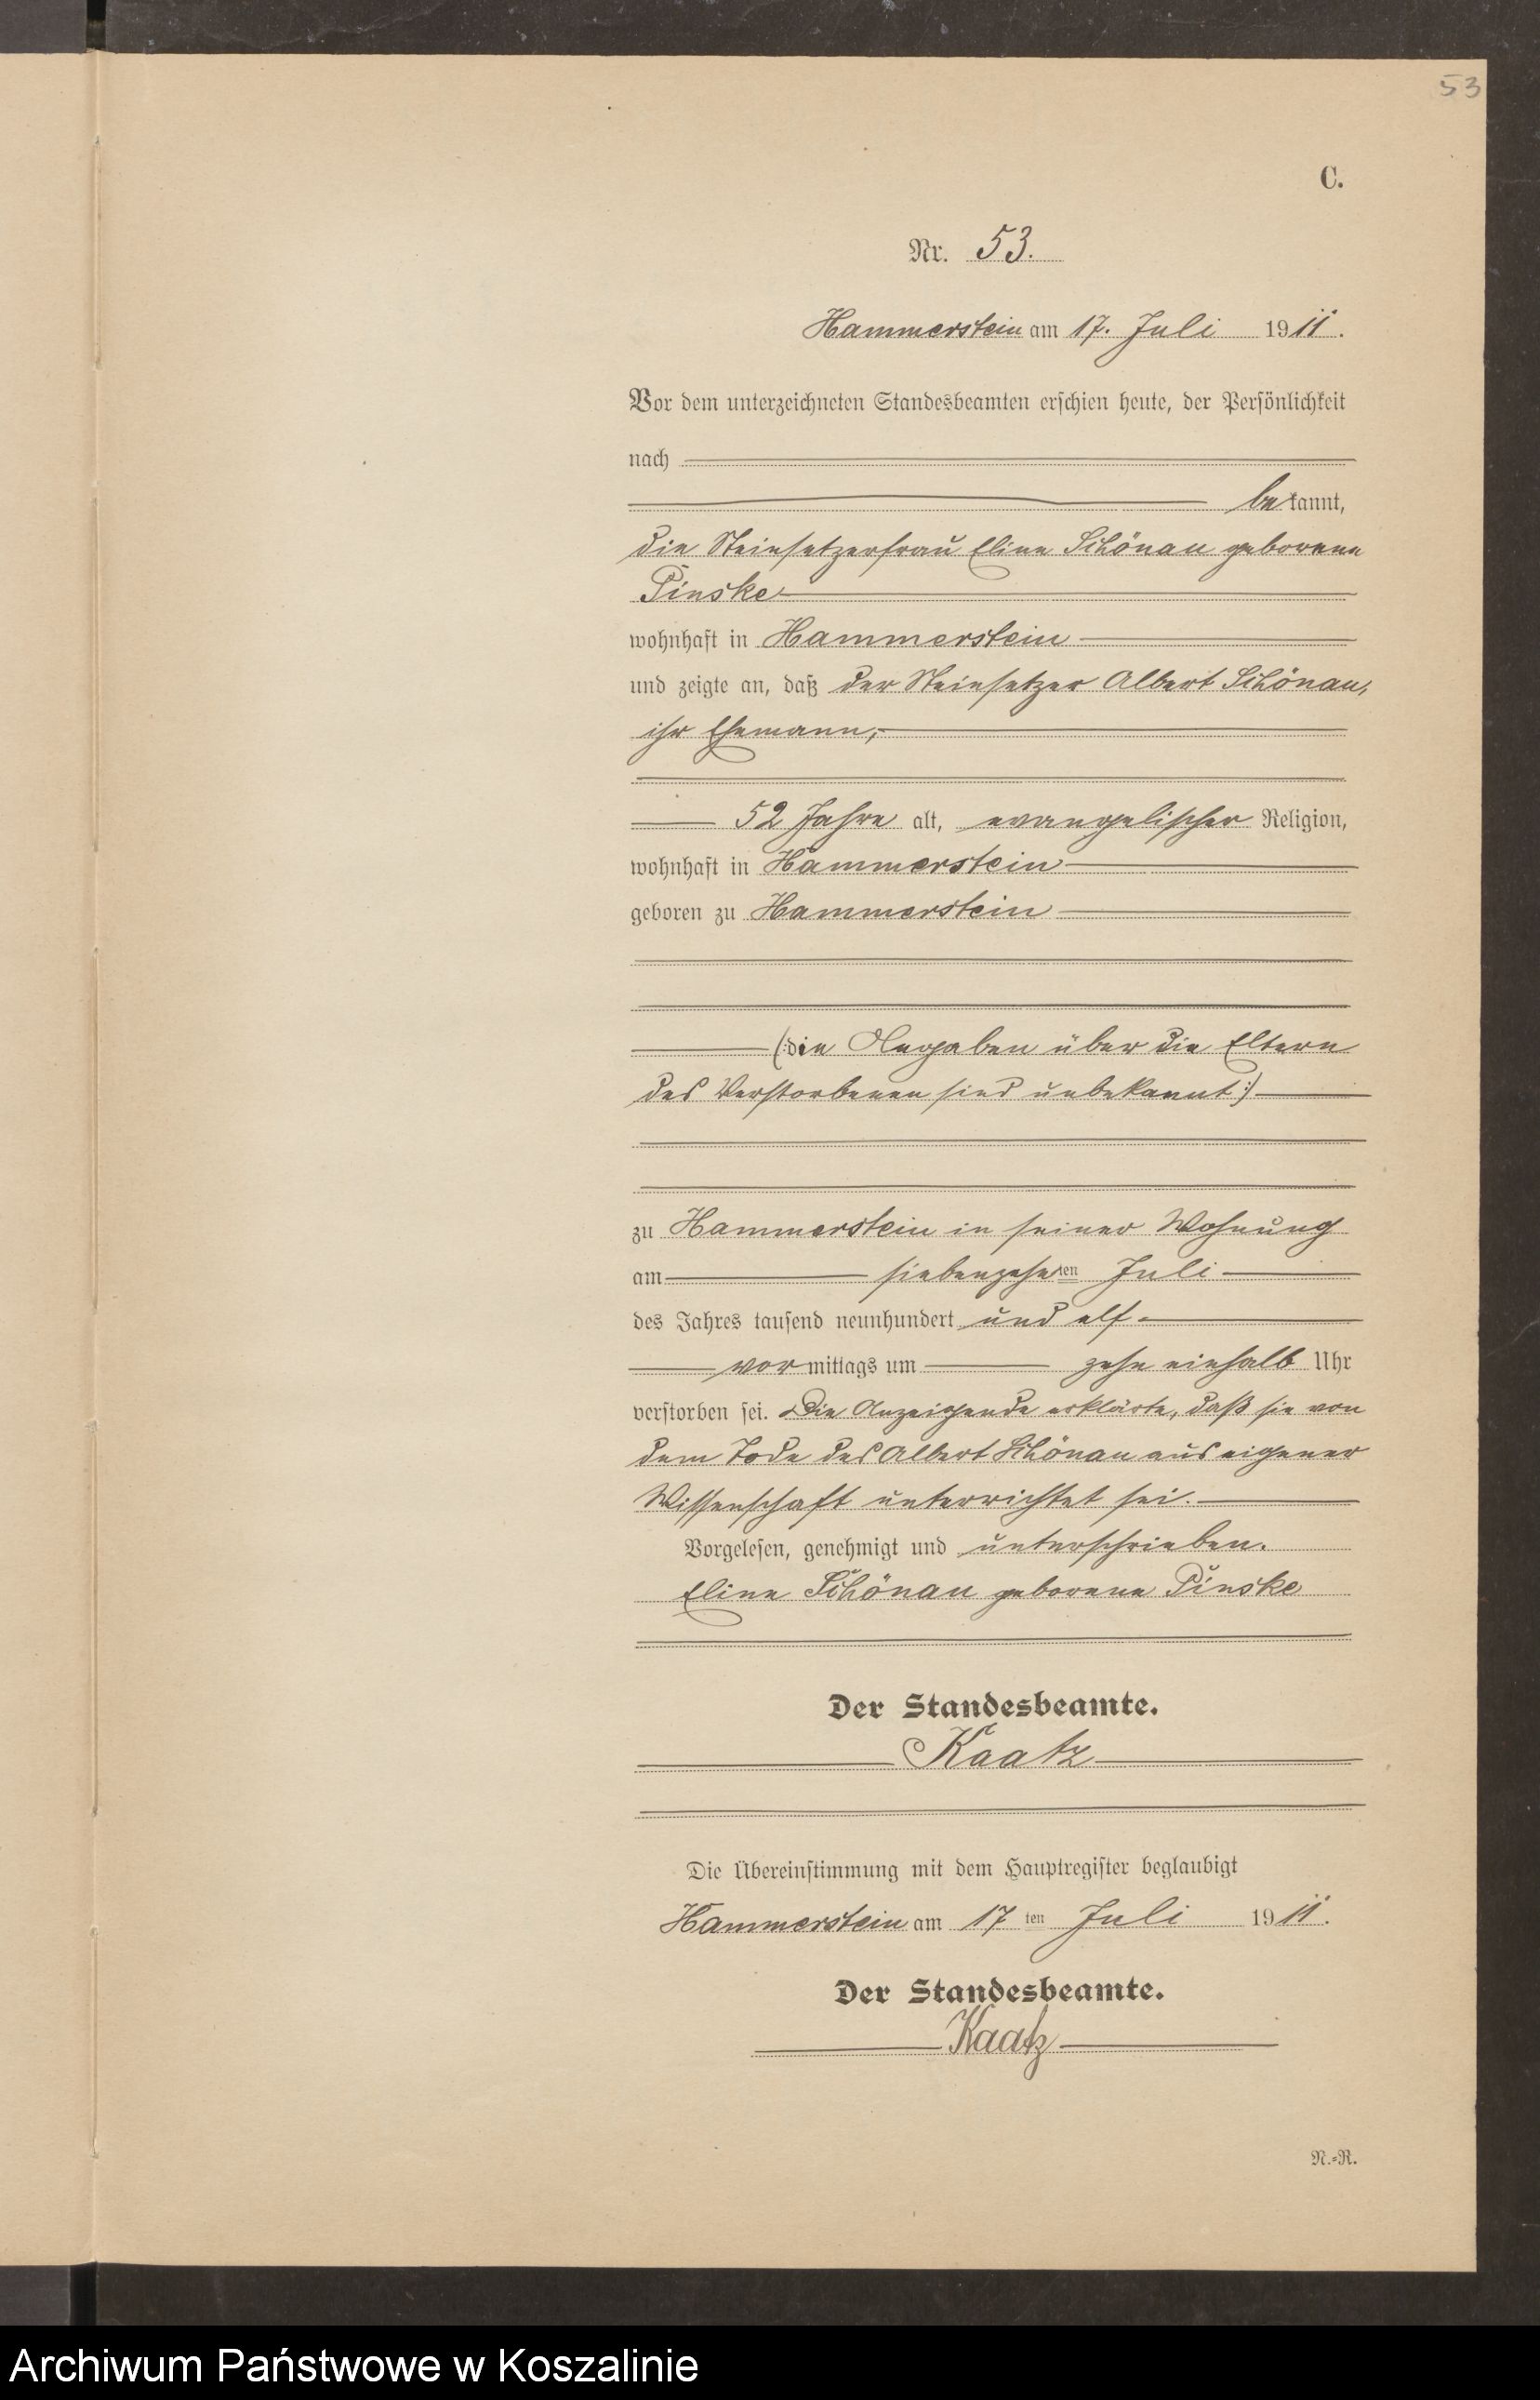 53
C.
Nr. 53.
Hammerstein am 17. Juli 1911.
Vor dem unterzeichneten Standesbeamten erschien heute, der Persönlichkeit
nach
bekannt,
die Steinsetzerfrau Eline Schönau geborene
Pinske
wohnhaft in Hammerstein
und zeigte an, daß der Steinsetzer Albert Schönau,
ihr Ehemann,
52 Jahre alt, evangelischer Religion,
wohnhaft in Hammerstein
geboren zu Hammerstein
(:die Angaben über die Eltern
des Verstorbenen sind unbekannt:)
zu Hammerstein in seiner Wohnung
am siebenzehnten Juli
des Jahres tausend neunhundert und elf
vormittags um zehn einhalb Uhr
verstorben sei. Die Anzeigende erklärte, daß sie von
dem Tode des Albert Schönau aus eigener
Wissenschaft unterrichtet sei.
Vorgelesen, genehmigt und unterschrieben.
Eline Schönau geborene Pinske
Der Standesbeamte.
Kaatz
Die Übereinstimmung mit dem Hauptregister beglaubigt
Hammerstein am 17ten Juli 1911.
Der Standesbeamte.
Kaatz
N.=R.
Archiwum Państwowe w Koszalinie